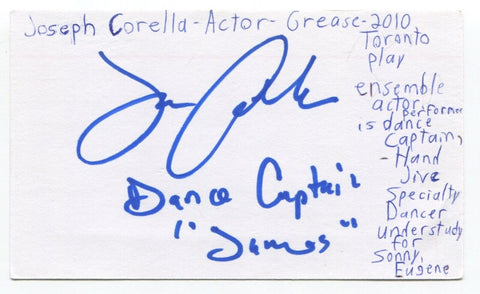 Joseph Corella-Actor-Grease-2010
Toronto
play
ensemble
actor,
performer
is dance
Captain,
-Hand
Jive
Specialty
Dancer
understudy
for
Sonny,
Eugene
Dance Captain
"James"